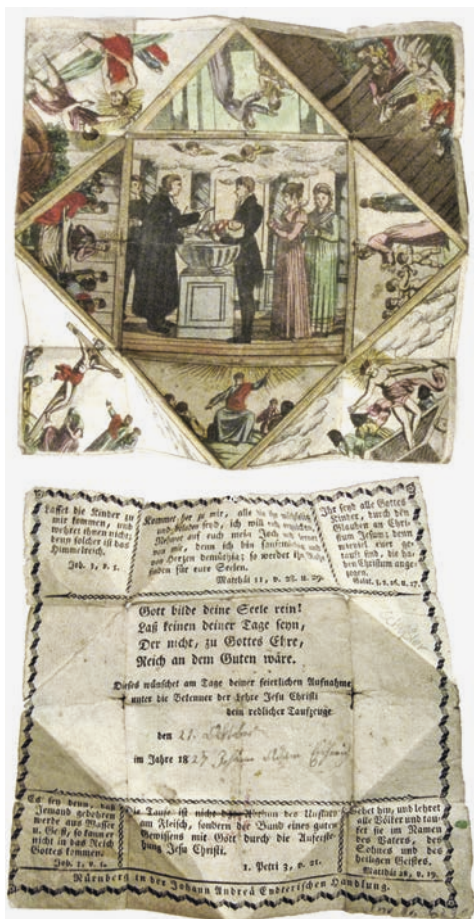 Lasset die Kinder zu
mir kommen, und
wehret ihnen nicht;
denn solcher ist das
Himmelreich.
Joh. 3, v. 5.
Kommet her zu mir, alle die ihr mühselig
und beladen seyd, ich will euch erquicken.
Nehmet auf euch mein Joch und lernet
von mir, denn ich bin sanftmüthig und
von Herzen demüthig; so werdet ihr Ruhe
finden für eure Seelen.
Matthäi 11, v. 28. u. 29.
Ihr seyd alle Gottes
Kinder, durch den
Glauben an Chri-
stum Jesum; denn
wieviel euer ge-
tauft sind, die ha-
ben Christum ange-
zogen.
Galat. 3, v. 26. u. 27.
Gott bilde deine Seele rein!
Laß keinen deiner Tage seyn,
Der nicht, zu Gottes Ehre,
Reich an dem Guten wäre.
Dieses wünschet am Tage deiner feierlichen Aufnahme
unter die Bekenner der Lehre Jesu Christi
dein redlicher Taufzeuge
den 21. Oktober
im Jahre 1827 Johann Adam
Es sey denn, daß
Jemand gebohren
werde aus Wasser
u. Geist, so kann er
nicht in das Reich
Gottes kommen.
Joh. 3, v. 5.
Die Taufe ist nicht das Abthun des Unflats
am Fleisch, sondern der Bund eines guten
Gewissens mit Gott durch die Auferste-
hung Jesu Christi.
1. Petri 3, v. 21.
Gehet hin, und lehret
alle Völker und tau-
fet sie im Namen
des Vaters, des
Sohnes und des
heiligen Geistes.
Matthäi 28, v. 19.
Nürnberg in der Johann Andreä Endterischen Handlung.